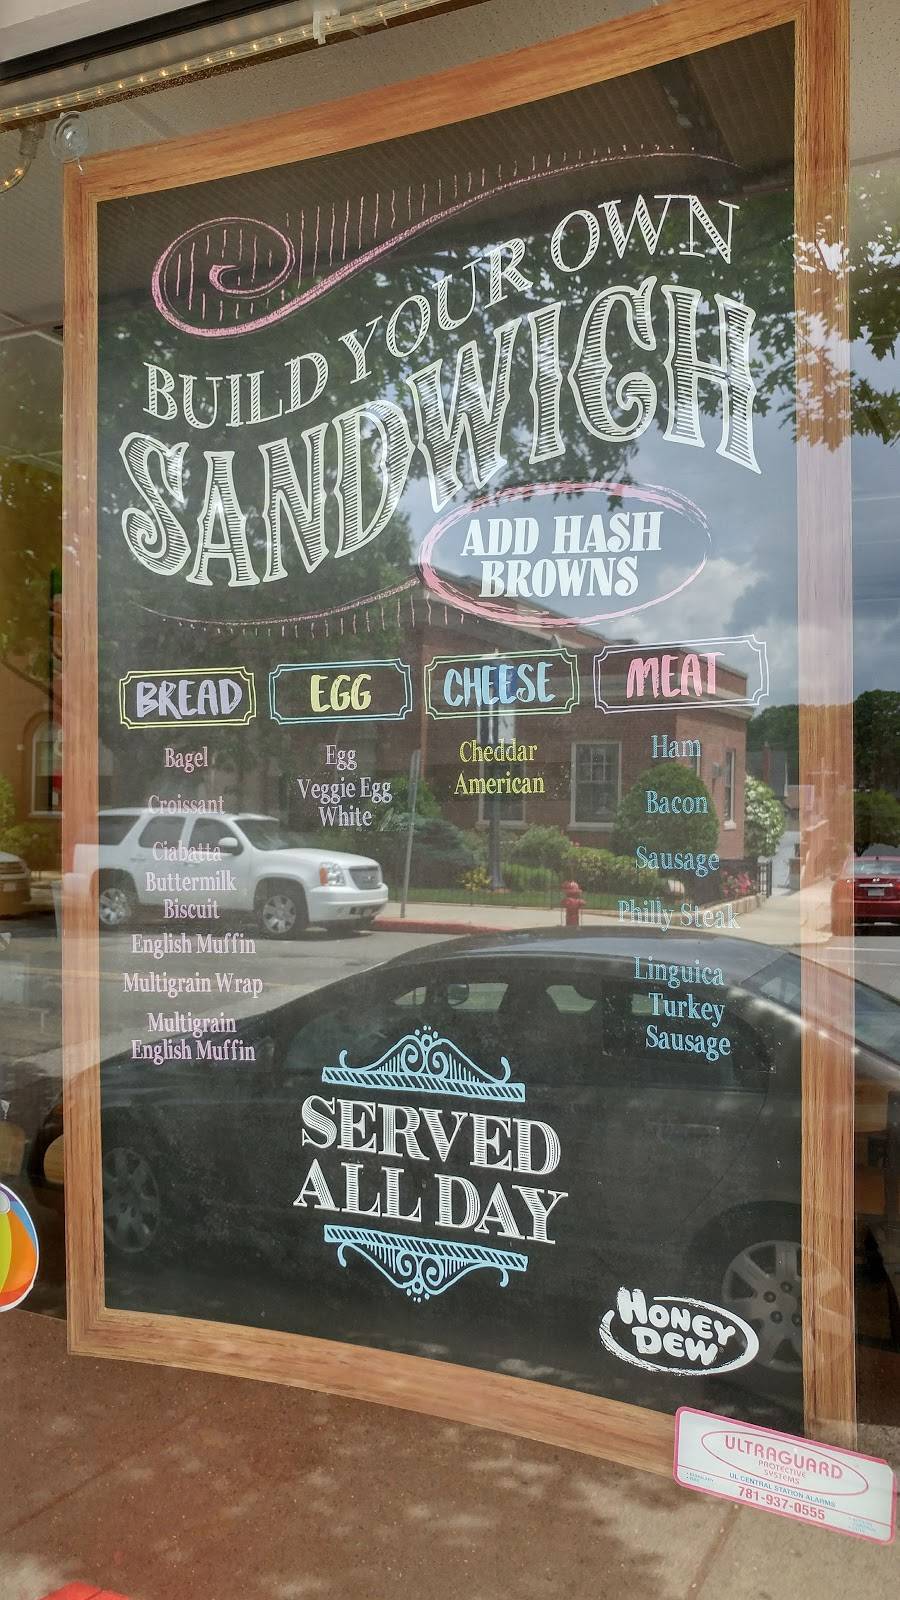 BUILD YOUR OWN
SANDWICH
ADD HASH
BROWNS
BREAD
Bagel
Croissant
Ciabatta
Buttermilk
Biscuit
English Muffin
Multigrain Wrap
Multigrain
English Muffin
EGG
Egg
Veggie Egg
White
CHEESE
Cheddar
American
MEAT
Ham
Bacon
Sausage
Philly Steak
Linguica
Turkey
Sausage
SERVED
ALL DAY
HONEY
DEW
ULTRAGUARD
PROTECTIVE
SYSTEMS
UL CENTRAL STATION ALARMS
781-937-0555